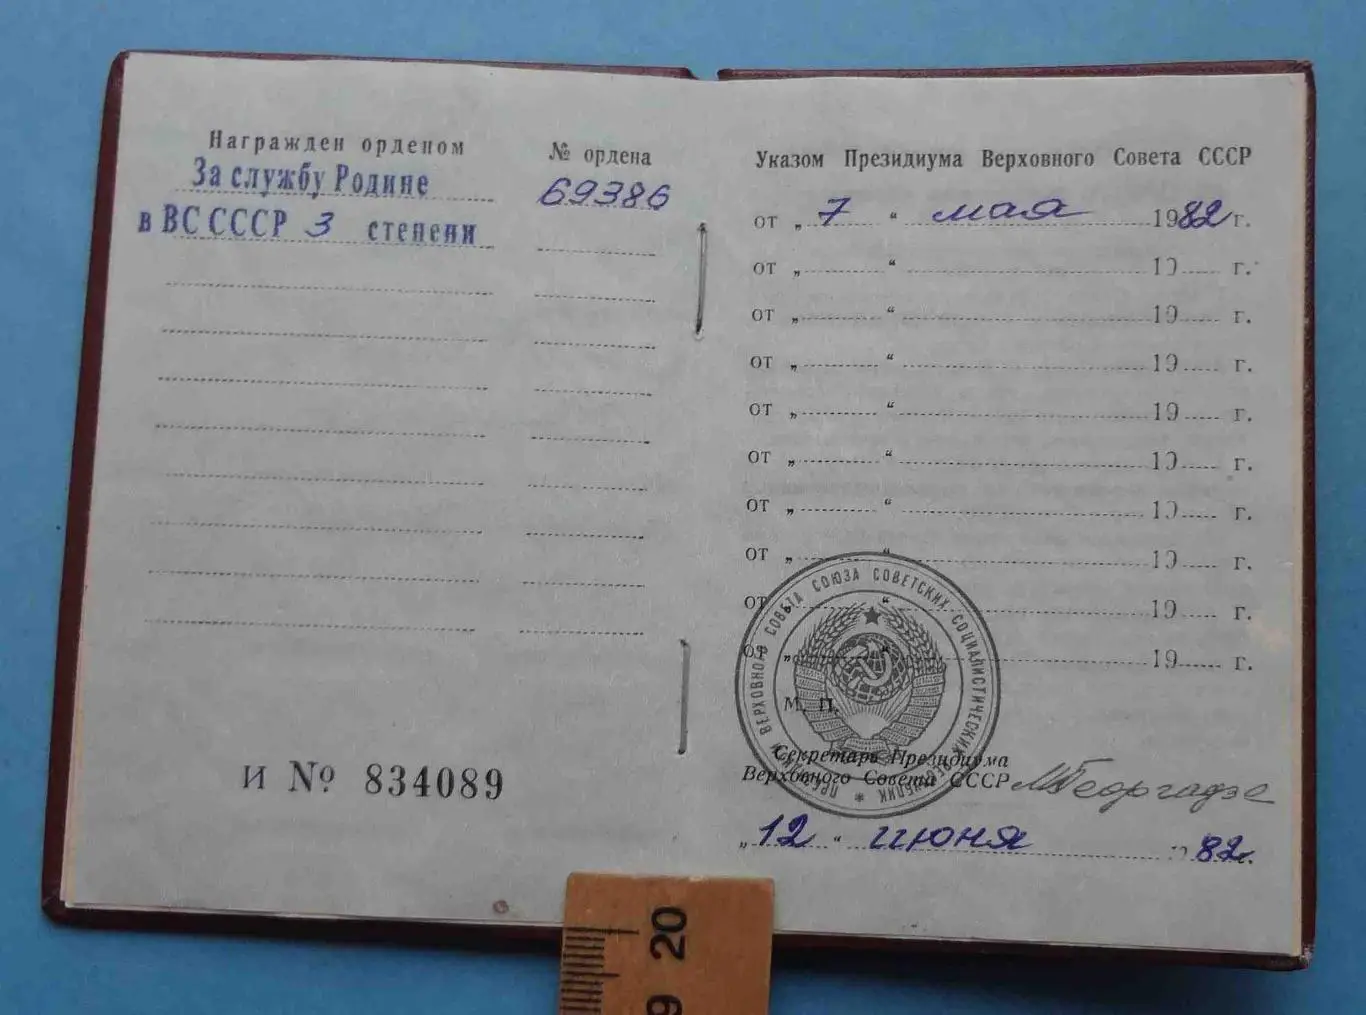 Награжден орденом
За службу Родине
в ВС СССР 3 степени
№ ордена
69386
И № 834089
Указом Президиума Верховного Совета СССР
от „ 7 “ мая 1982 г.
от „ “ 19 г.
от „ “ 19 г.
от „ “ 19 г.
от „ “ 19 г.
от „ “ 19 г.
от „ “ 19 г.
от „ “ 19 г.
от „ “ 19 г.
от „ “ 19 г.
М. П.
ПРЕЗИДИУМ ВЕРХОВНОГО СОВЕТА СОЮЗА СОВЕТСКИХ СОЦИАЛИСТИЧЕСКИХ РЕСПУБЛИК *
Секретарь Президиума
Верховного Совета СССР М Георгадзе
„ 12 “ июня 1982 г.
20
9